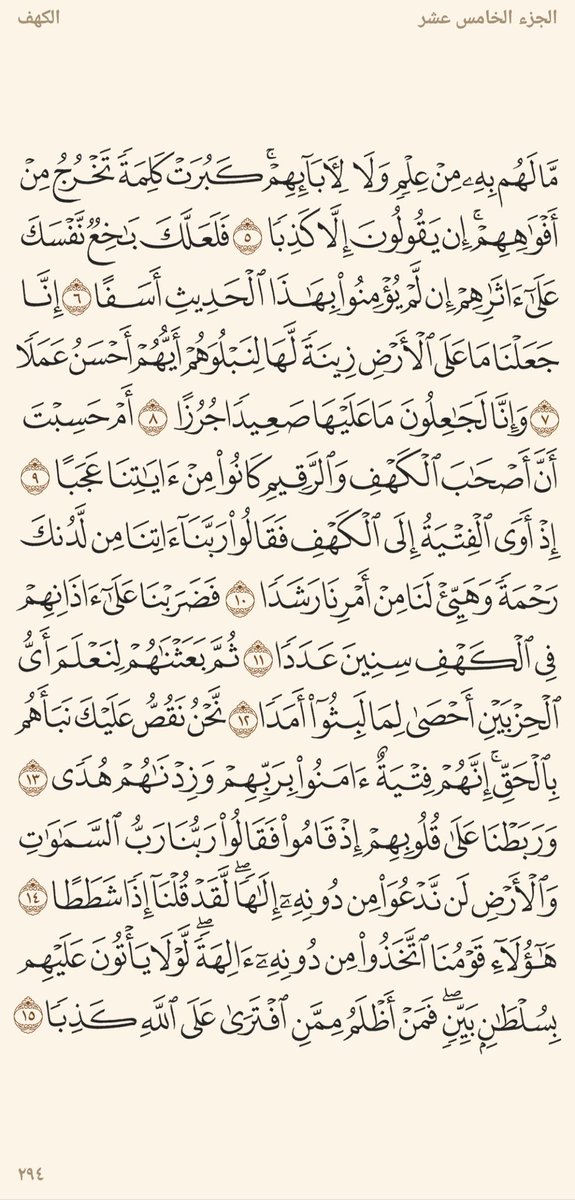 الجزء الخامس عشر
الكهف
مَّا لَهُم بِهِۦ مِنْ عِلْمٍ وَلَا لِأٓبَآئِهِمْ ۚ كَبُرَتْ كَلِمَةً تَخْرُجُ مِنْ
أَفْوَٰهِهِمْ ۚ إِن يَقُولُونَ إِلَّا كَذِبًا ٥ فَلَعَلَّكَ بَٰخِعٌ نَّفْسَكَ
عَلَىٰٓ ءَاثَٰرِهِمْ إِن لَّمْ يُؤْمِنُوا۟ بِهَٰذَا ٱلْحَدِيثِ أَسَفًا ٦ إِنَّا
جَعَلْنَا مَا عَلَى ٱلْأَرْضِ زِينَةً لَّهَا لِنَبْلُوَهُمْ أَيُّهُمْ أَحْسَنُ عَمَلًا
٧ وَإِنَّا لَجَٰعِلُونَ مَا عَلَيْهَا صَعِيدًا جُرُزًا ٨ أَمْ حَسِبْتَ
أَنَّ أَصْحَٰبَ ٱلْكَهْفِ وَٱلرَّقِيمِ كَانُوا۟ مِنْ ءَايَٰتِنَا عَجَبًا ٩
إِذْ أَوَى ٱلْفِتْيَةُ إِلَى ٱلْكَهْفِ فَقَالُوا۟ رَبَّنَآ ءَاتِنَا مِن لَّدُنكَ
رَحْمَةً وَهَيِّئْ لَنَا مِنْ أَمْرِنَا رَشَدًا ١٠ فَضَرَبْنَا عَلَىٰٓ ءَاذَانِهِمْ
فِى ٱلْكَهْفِ سِنِينَ عَدَدًا ١١ ثُمَّ بَعَثْنَٰهُمْ لِنَعْلَمَ أَىُّ
ٱلْحِزْبَيْنِ أَحْصَىٰ لِمَا لَبِثُوٓا۟ أَمَدًا ١٢ نَّحْنُ نَقُصُّ عَلَيْكَ نَبَأَهُم
بِٱلْحَقِّ ۚ إِنَّهُمْ فِتْيَةٌ ءَامَنُوا۟ بِرَبِّهِمْ وَزِدْنَٰهُمْ هُدًى ١٣
وَرَبَطْنَا عَلَىٰ قُلُوبِهِمْ إِذْ قَامُوا۟ فَقَالُوا۟ رَبُّنَا رَبُّ ٱلسَّمَٰوَٰتِ
وَٱلْأَرْضِ لَن نَّدْعُوَا۟ مِن دُونِهِۦٓ إِلَٰهًا ۖ لَّقَدْ قُلْنَآ إِذًا شَطَطًا ١٤
هَٰٓؤُلَآءِ قَوْمُنَا ٱتَّخَذُوا۟ مِن دُونِهِۦٓ ءَالِهَةً ۖ لَّوْلَا يَأْتُونَ عَلَيْهِم
بِسُلْطَٰنٍۭ بَيِّنٍ ۖ فَمَنْ أَظْلَمُ مِمَّنِ ٱفْتَرَىٰ عَلَى ٱللَّهِ كَذِبًا ١٥
٢٩٤